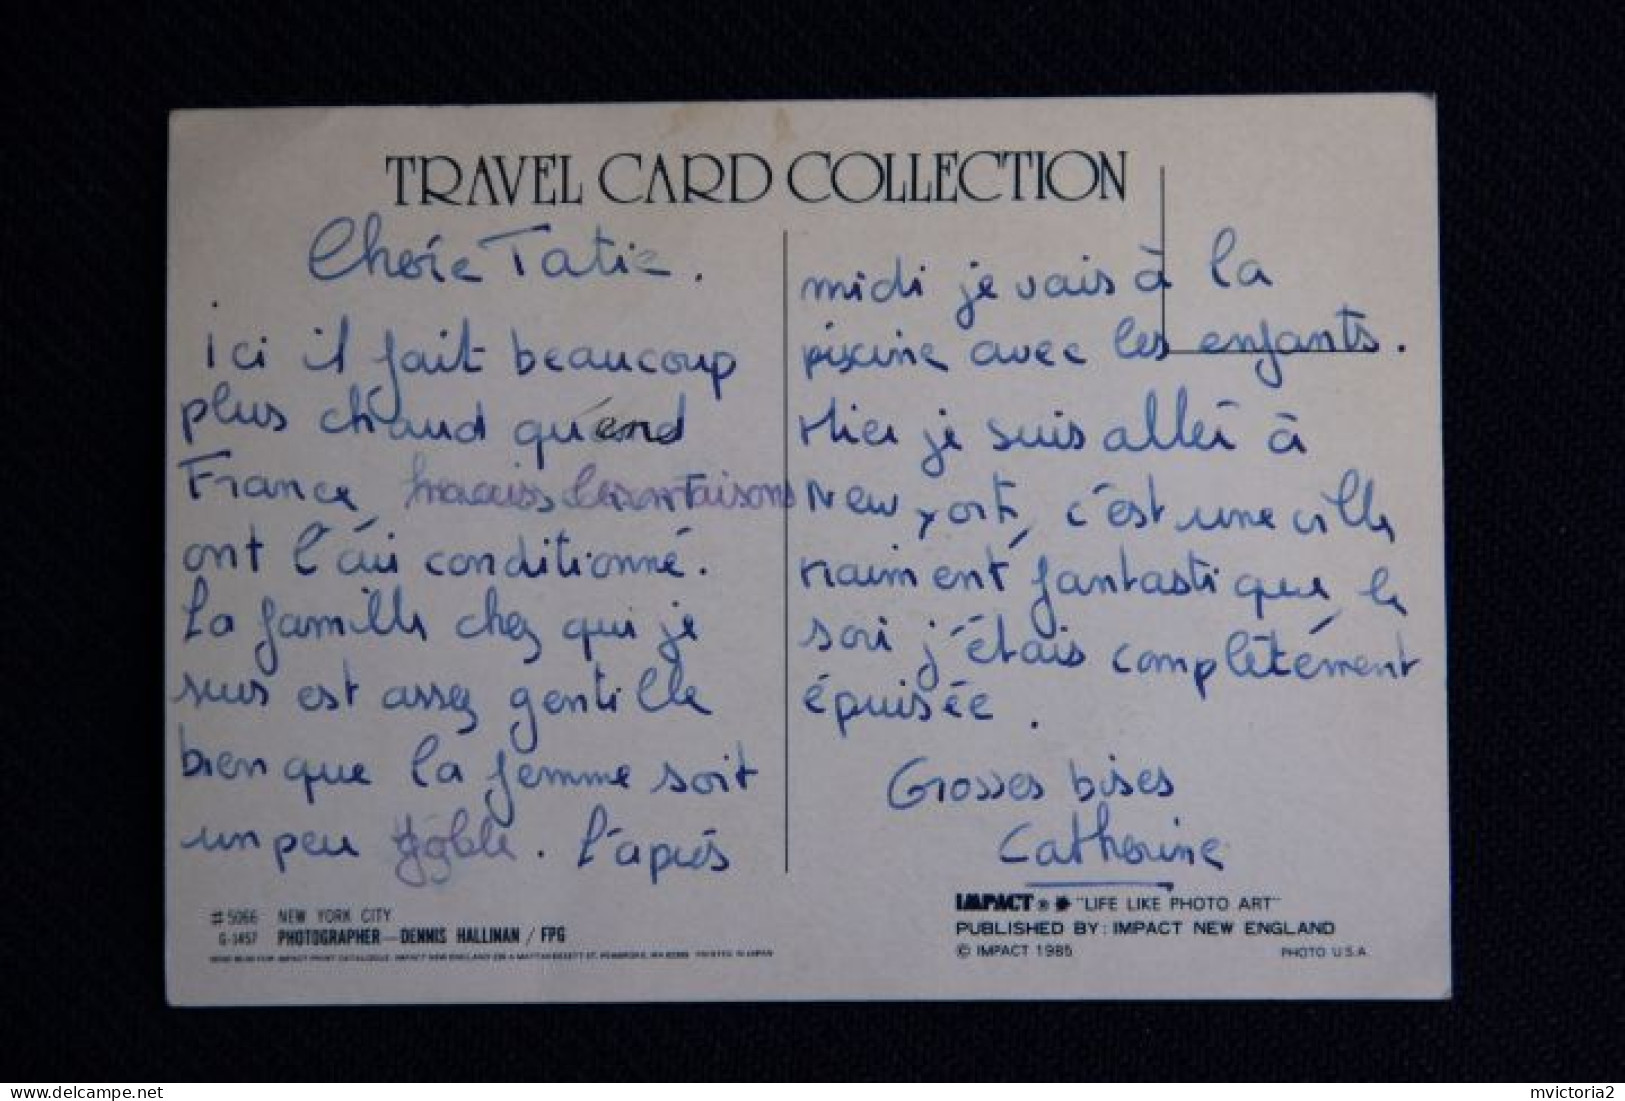 TRAVEL CARD COLLECTION
Chère Tatie.
ici il fait beaucoup
plus chaud qu'end
France mais les maisons
ont l'air conditionné.
La famille chez qui je
suis est assez gentille
bien que la femme soit
un peu . l'après
midi je vais à la
piscine avec les enfants.
Hier je suis allée à
New york, c'est une ville
vraiment fantastique, le
soir j'étais complètement
épuisée.
Grosses bises
Catherine
#5066 NEW YORK CITY
G-1457 PHOTOGRAPHER—DENNIS HALLINAN / FPG
SEND $2.00 FOR IMPACT PRINT CATALOGUE. IMPACT NEW ENGLAND ST. PEMBROKE, MA PRINTED IN JAPAN
IMPACT® "LIFE LIKE PHOTO ART"
PUBLISHED BY: IMPACT NEW ENGLAND
© IMPACT 1985 PHOTO U.S.A.
delcampe.net
mvictoria2